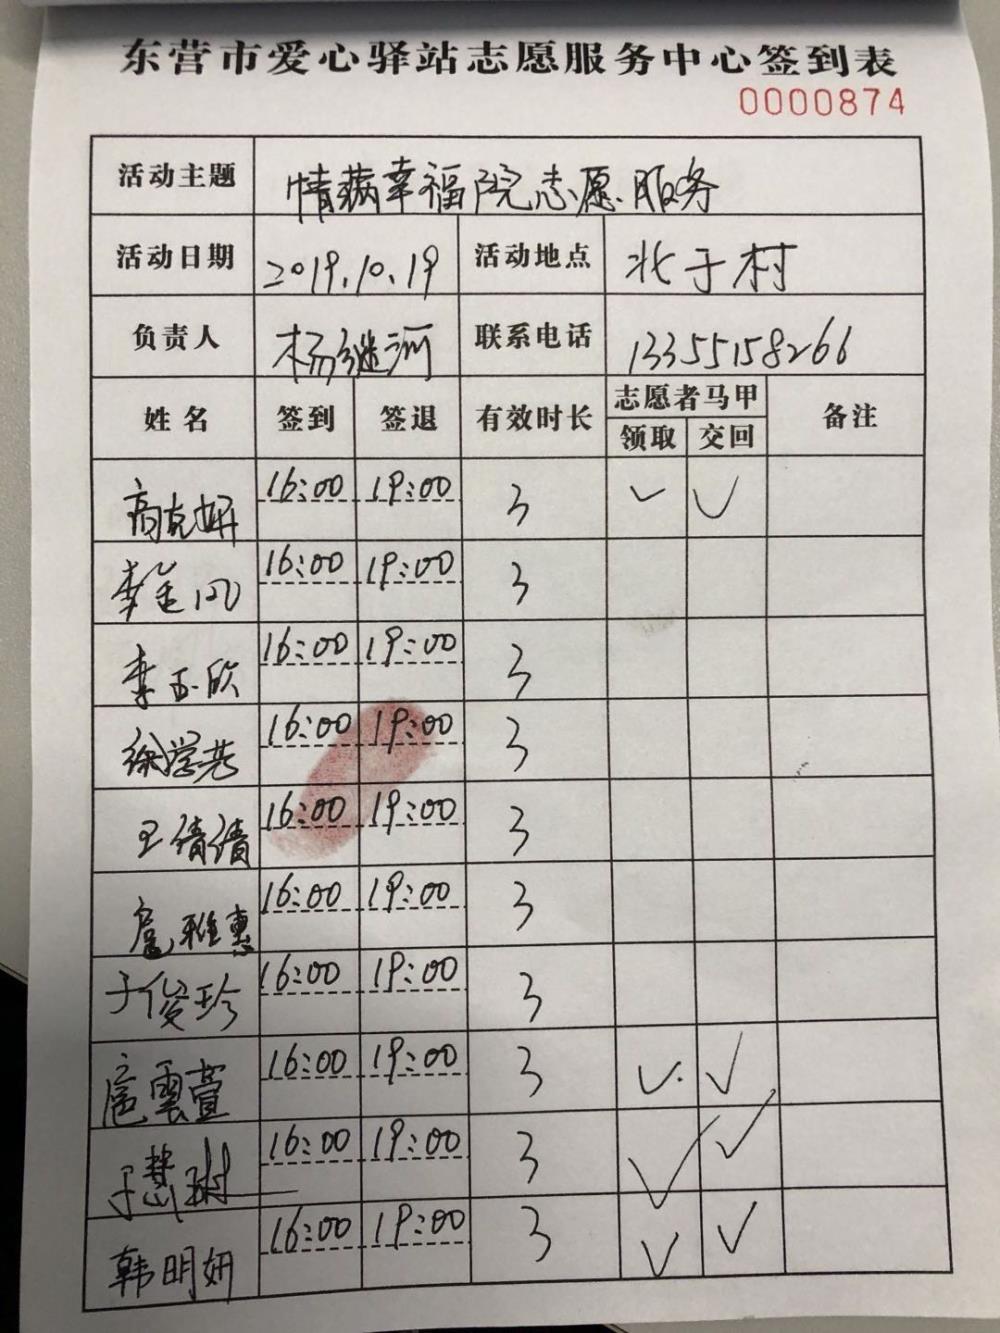 东营市爱心驿站志愿服务中心签到表
0000874
活动主题 情满幸福院志愿服务
活动日期 2019.10.19 活动地点 北于村
负责人 杨继河 联系电话 13355158266
姓名 签到 签退 有效时长 志愿者马甲 备注
领取 交回
高克妍 16:00 19:00 3 ✓ ✓
李金风 16:00 19:00 3
李玉欣 16:00 19:00 3
徐学芳 16:00 19:00 3
王倩倩 16:00 19:00 3
扈雅惠 16:00 19:00 3
于俊珍 16:00 19:00 3
扈雲萱 16:00 19:00 3 ✓ ✓
于慧 16:00 19:00 3 ✓ ✓
韩明妍 16:00 19:00 3 ✓ ✓